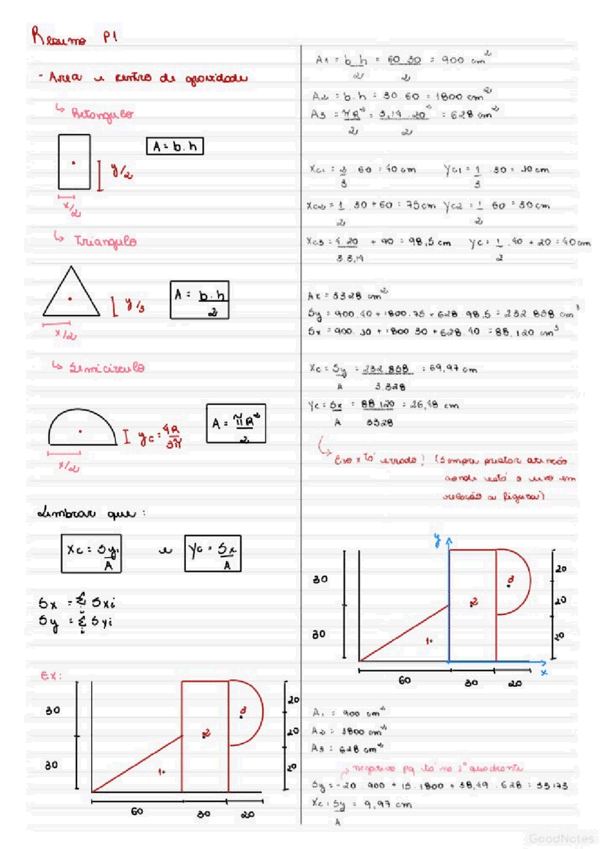 Resumo P1
- Área e centro de gravidade
↳ Retangulo
A = b.h
y/2
x/2
↳ Triangulo
y/3
A = b.h
2
x/2
↳ Semicirculo
yc = 4R
3π
A = πR²
2
x/2
Lembrar que:
Xc = Sy
A
e
Yc = Sx
A
Sx = Σ Sxi
Sy = Σ Syi
Ex:
30
30
1.
2
3
20
20
20
60
30
20
A1 = b.h = 60.30 = 900 cm²
2 2
A2 = b.h = 30.60 = 1800 cm²
A3 = πR² = 3,14.20² = 628 cm²
2 2
Xc1 = 2 . 60 = 40 cm Yc1 = 1 . 30 = 10 cm
3 3
Xc2 = 1 . 30 + 60 = 75 cm Yc2 = 1 . 60 = 30 cm
2 2
Xc3 = 4.20 + 90 = 98,5 cm Yc = 1 . 40 + 20 = 40 cm
3.3,14 2
At = 3328 cm²
Sy = 900.40 + 1800.75 + 628.98,5 = 232 858 cm³
Sx = 900.10 + 1800.30 + 628.40 = 88.120 cm³
Xc = Sy = 232.858 = 69,97 cm
A 3.328
Yc = Sx = 88120 = 26,48 cm
A 3328
↳ Esse x tá errado! (Sempre prestar atenção
aonde está o eixo em
relação a figura)
y
30
30
1.
2
3
20
20
20
x
60
30
20
A1 = 900 cm²
A2 = 1800 cm²
A3 = 628 cm²
negativo pq tá no 2° quadrante
Sy = -20.900 + 15.1800 + 38,49.628 = 33173
Xc = Sy = 9,97 cm
A
GoodNotes